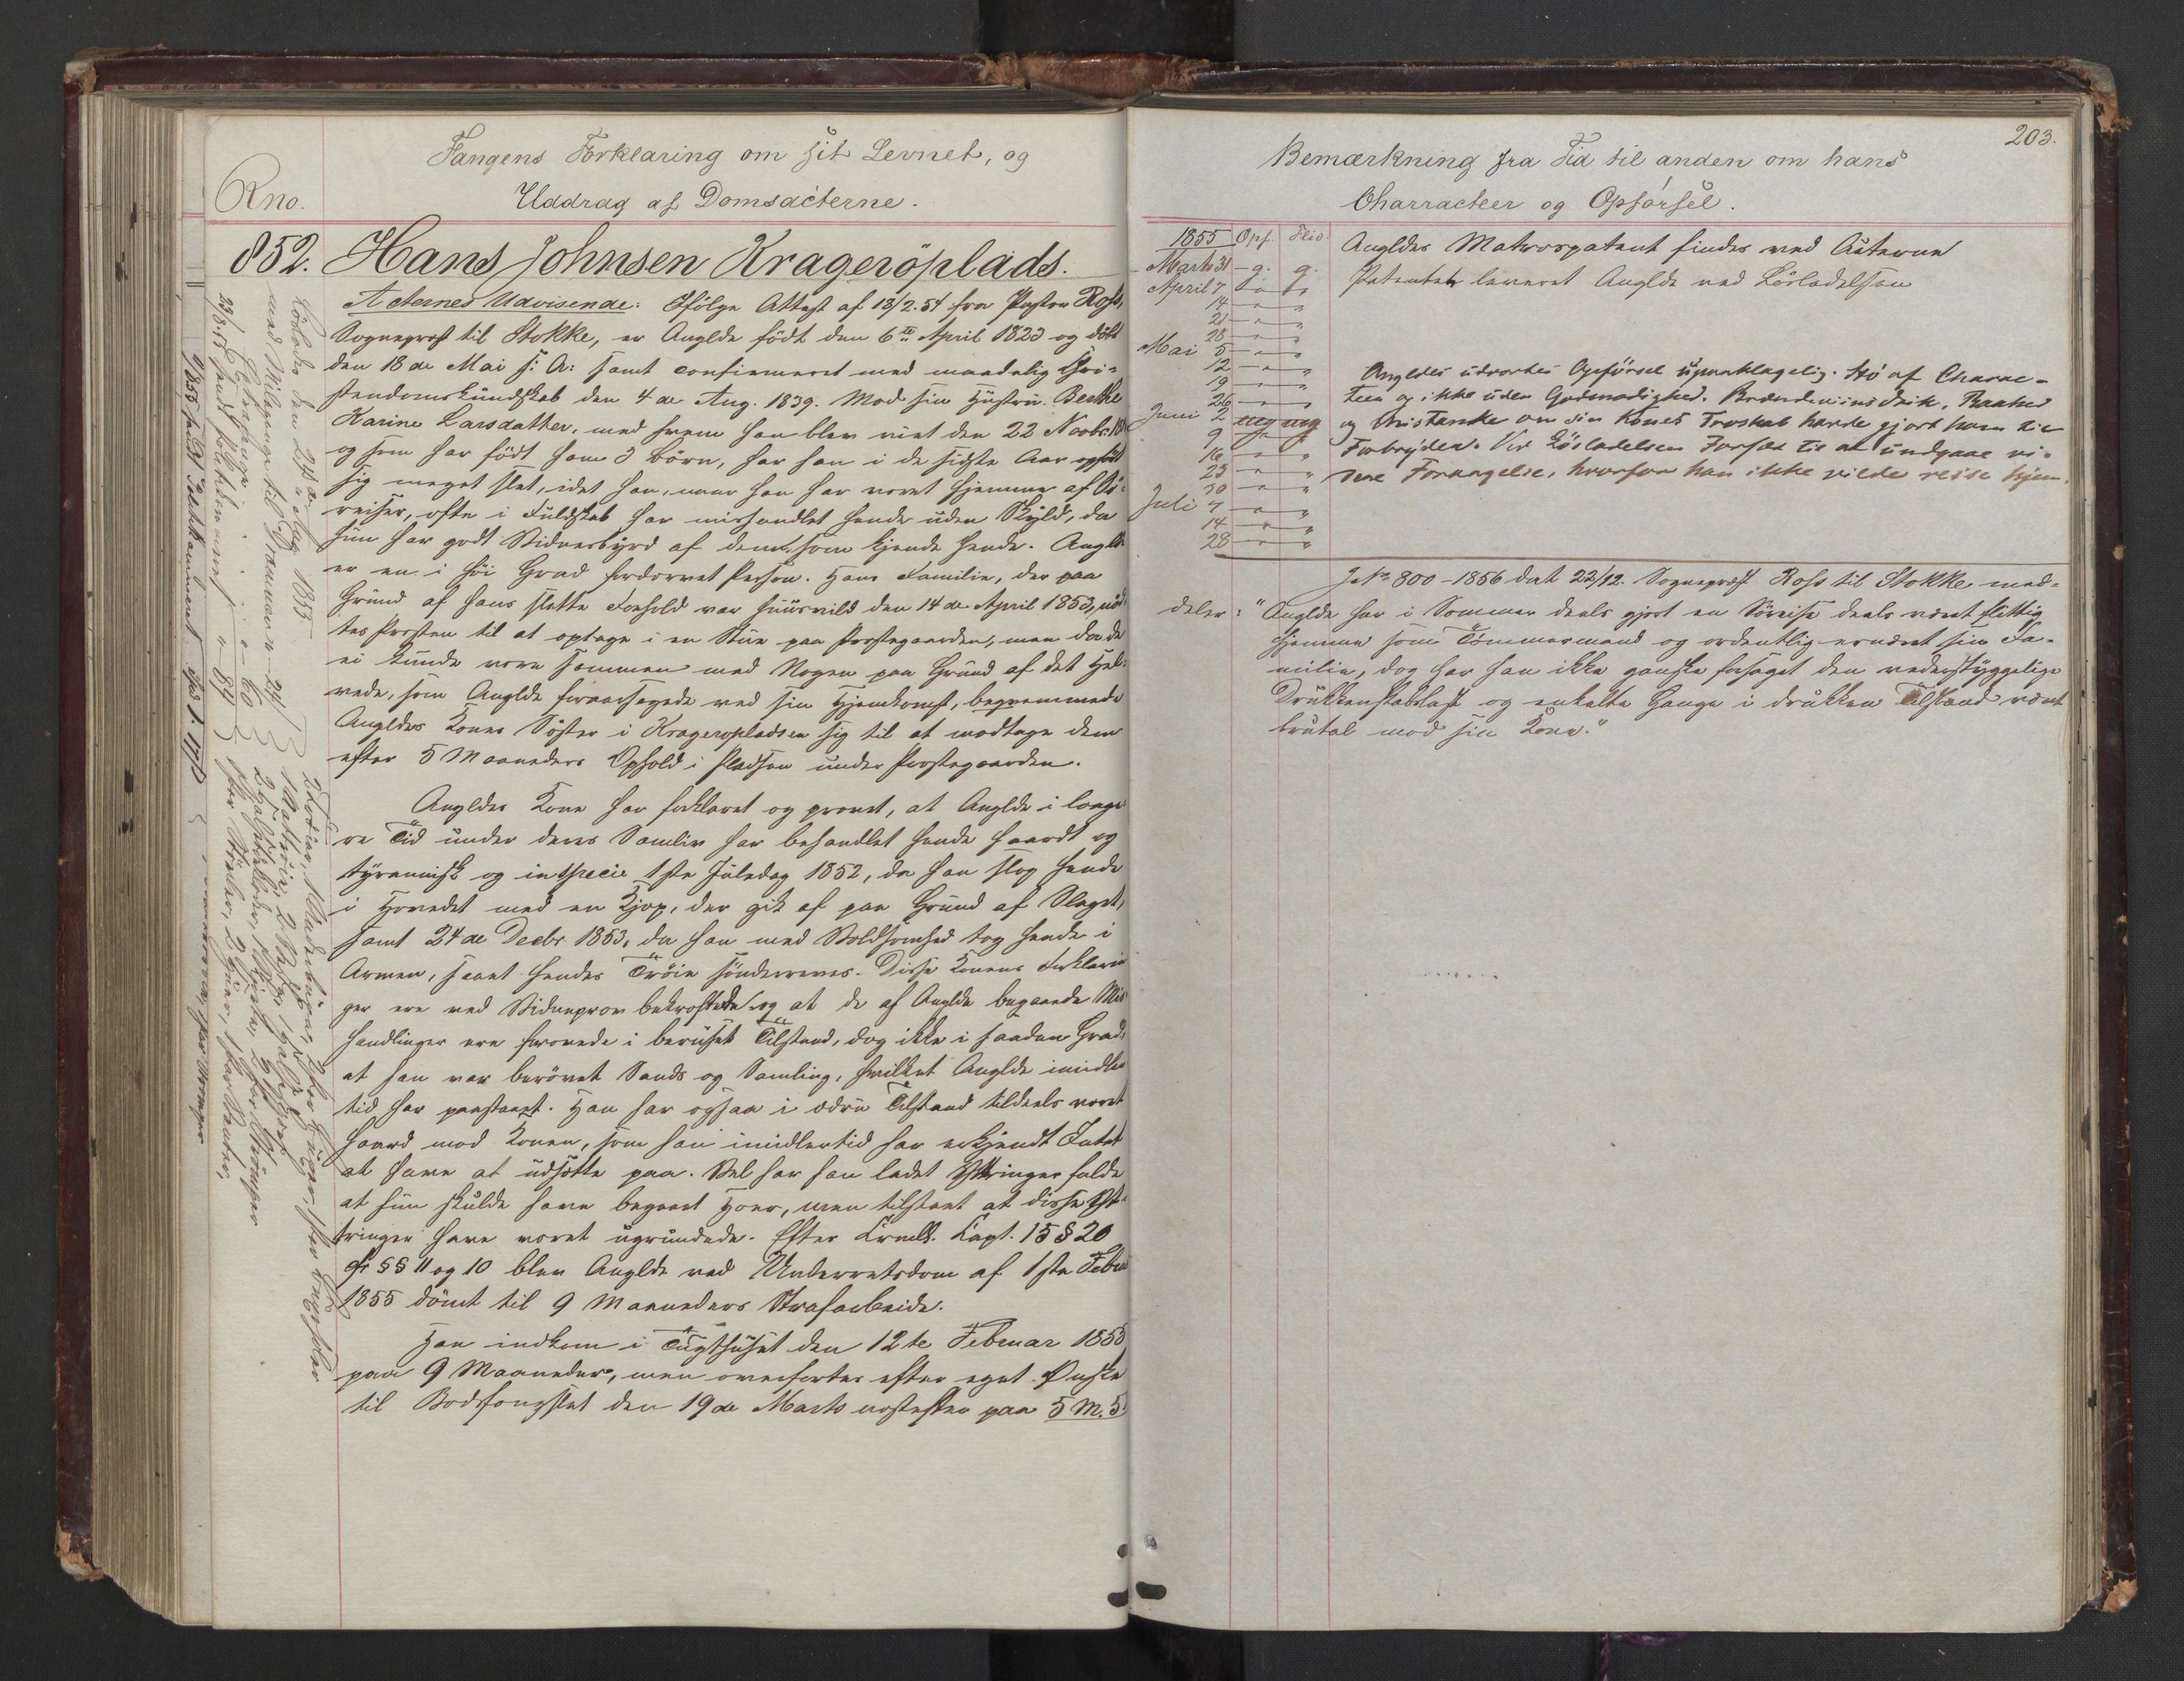 Rno.
Fangens Forklaring om sit Levnet, og
Uddrag af Domsacterne.
852. Hans Johnsen Krageröplads.
Acternes Udvisende: Ifölge Attest af 18/2.54 fra Pastor Ross,
Sogneprest til Stokke, er Anglde födt den 6te April 1823 og döbt
den 18de Mai s: A: samt confirmeret med maadelig Chri-
stendomskundskab den 4de Aug. 1839. Mod sin Hustru Beathe
Karine Larsdatter, med hvem han blev viet den 22 Novbr.
og som har födt ham 3 Börn, har han i de sidste Aar opfört
sig meget slet, idet han, naar han har været hjemme af Sö-
reiser, ofte i Fuldskab har mishandlet hende uden Skyld, da
hun har godt Vidnesbyrd af dem som kjende hende. Anglde
er en i höi Grad fordærvet Person. Hans Familie, der paa
Grund af hans slette Forhold var huusvild den 14de April 1853, nöd-
tes Presten til at optage i en Stue paa Prestegaarden, men da de
ei kunde være sammen med Nogen paa Grund af det Hel-
vede, som Anglde foraarsagede ved sin Hjemkomst, beqvemmede
Angldes Kones Söster i Krageröpladsen sig til at modtage dem
efter 5 Maaneders Ophold i Pladsen under Prestegaarden.
Angldes Kone har forklaret og prövet, at Anglde i længe-
re Tid under deres Samliv har behandlet hende haardt og
tyrannisk og in specie 1ste Juledag 1852, da han slog hende
i Hovedet med en Kjæp, der gik af paa Grund af Slaget,
samt 24de Decbr 1853, da han med Voldsomhed tog hende i
Armen, samt hendes Tröie sönderreves. Disse Konens Forklarin-
ger ere ved Vidneprov bekræftede og at de af Anglde begaaede Mis-
handlinger ere forövede i beruset Tilstand, dog ikke i saadan Grad,
at han var berövet Sands og Samling, hvilket Anglde imidler-
tid har paastaaet. Han har ogsaa i ædru Tilstand tildeels været
haard mod Konen, som han imidlertid har erkjendt Intet
at have at udsætte paa. Vel har han ladet Yttringer falde
at hun skulde have begaaet Hoer, men tilstaaet at disse Yt-
tringer have været ugrundede. Efter Crmll. Capt. 15 § 20
cfr §§ 11 og 10 blev Anglde ved Underretsdom af 1ste Febr
1855 dömt til 9 Maaneders Strafarbeide.
Han indkom i Tugthuset den 12te Februar 1855
paa 9 Maaneder, men overfortes efter eget Önske
til Bodsfængslet den 19de Marts næstefter paa 5 M. 5
Lösladt den 24de Aug 1855
203.
Bemærkning fra Tid til anden om hans
Charracteer og Opförsel.
1855 Opf. Flid
Marts 31 g. g.
April 7 " "
14 " "
21 " "
28 " "
Mai 5 " "
12 " "
19 " "
26 " "
Juni 2 mg mg
9 " "
16 " "
23 " "
30 " "
Juli 7 " "
14 " "
28 " "
Angldes Matrospatent findes ved Acterne
Patentet leveret Anglde ved Lösladelsen
Angldes udvortes Opförsel upaaklagelig. Stö af Charac-
teer og ikke uden Godmodighed. Brændeviinsdrik, Raahed
og Mistanke om sin Kones Troskab havde gjort ham til
Forbryder. Ved Lösladelsen Forsæt til at undgaae vi-
dere Forargelse, hvorfor han ikke vilde reise hjem.
J.No 800-1856 dat 22/12. Sogneprest Ross til Stokke med-
deler: "Anglde har i Sommer deels gjort en Söreise deels været flittig
hjemme som Tömmermand og ordentlig ernæret sin Fa-
milie, dog har han ikke ganske forsaget den vederstyggelige
Drukkenskabslast og enkelte Gange i drukken Tilstand været
brutal mod sin Kone."